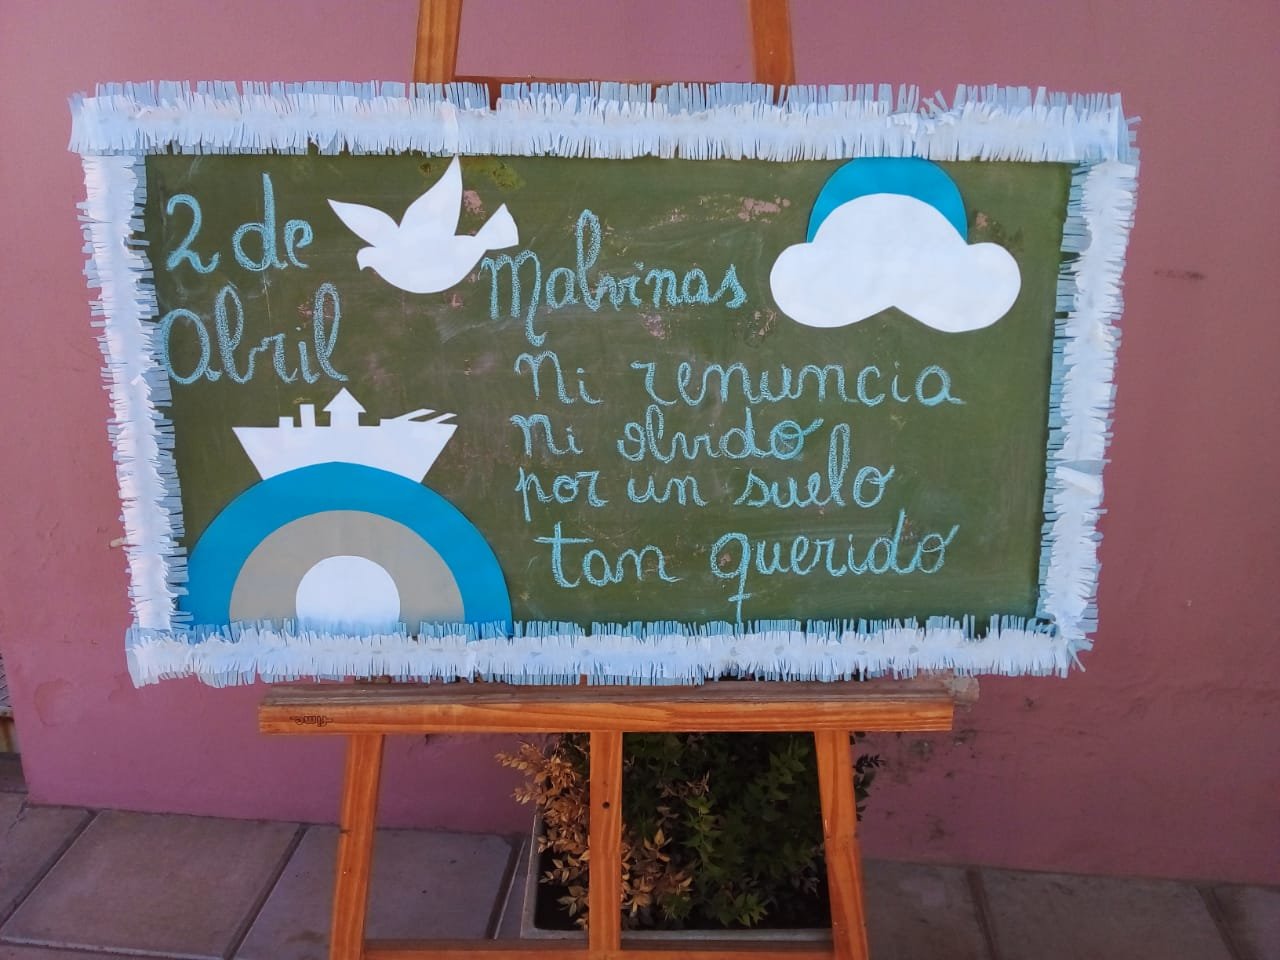 2 de
Abril
Malvinas
Ni renuncia
Ni olvido
por un suelo
tan querido